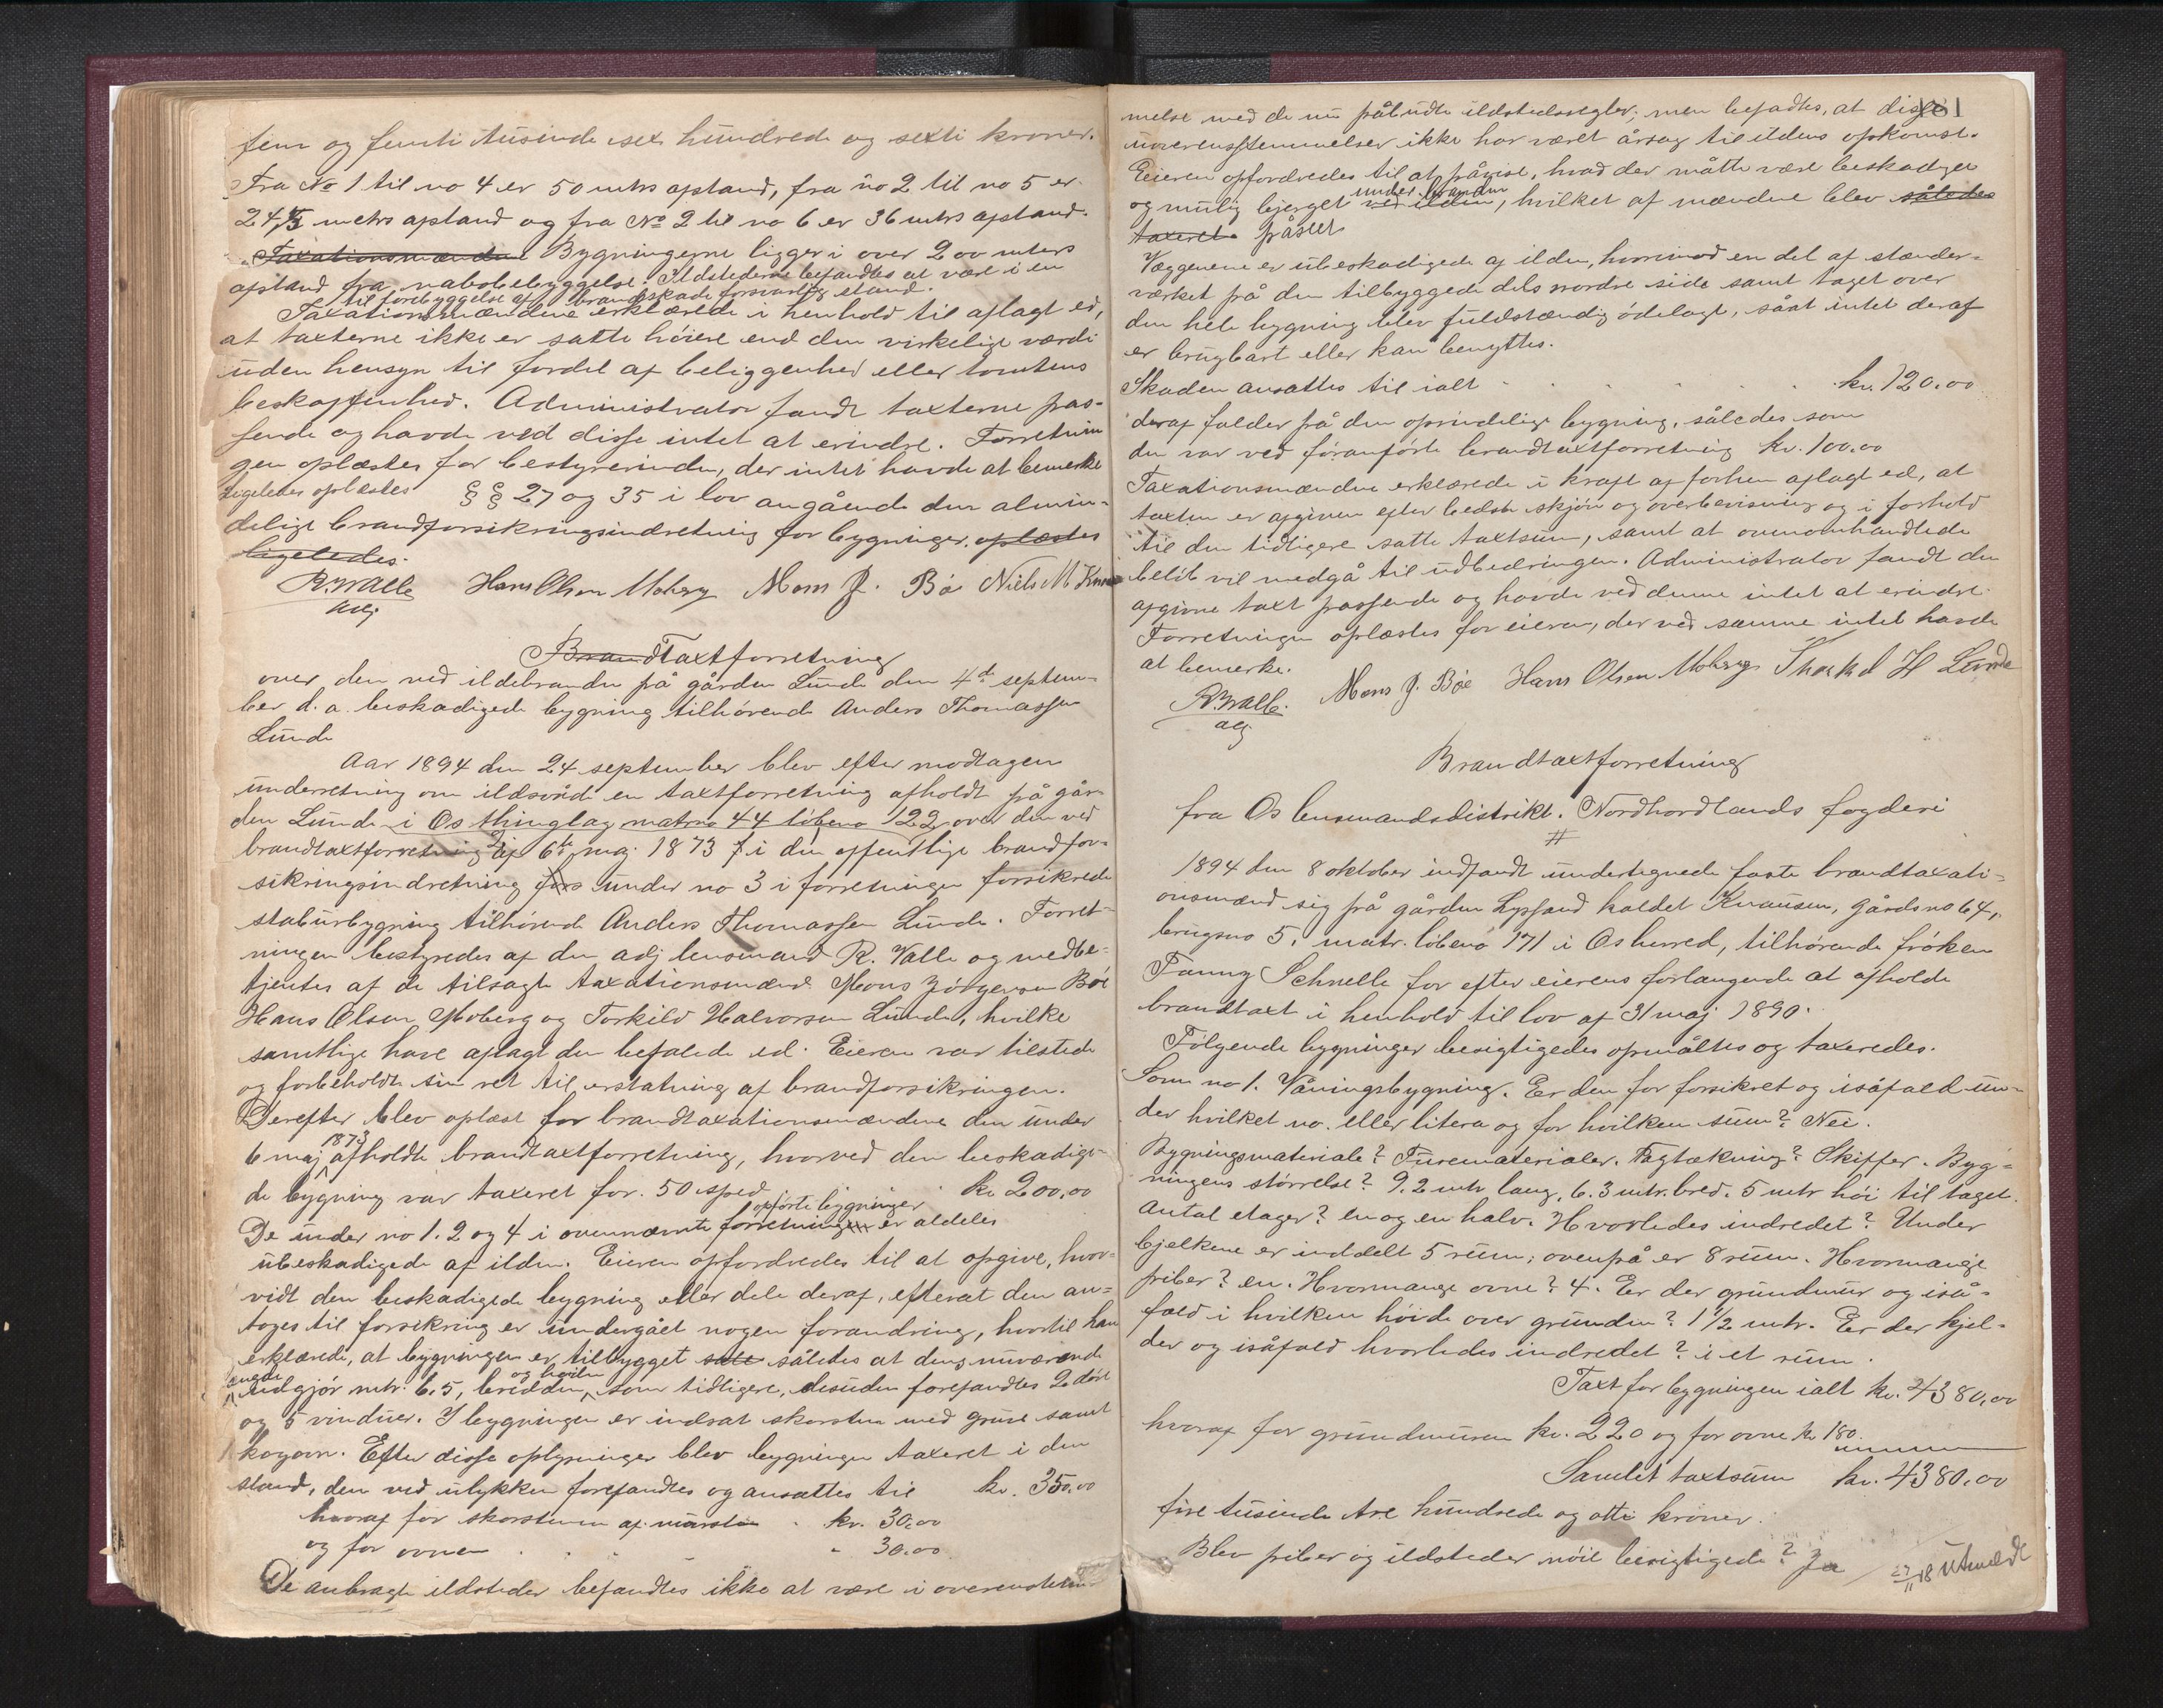 fem og femti tusinde sex hundrede og sexti kroner.
Fra No 1 til no 4 er 50 mtrs afstand, fra no 2 til no 5 er
24,5 metrs afstand og fra No 2 til no 6 er 36 mtrs afstand.
Taxationsmændene Bygningerne ligger i over 200 mters
afstand fra nabobebyggelse. Ildstederne befandtes at være i en
til forebyggelse af brandskade forsvarlig stand.
Taxationsmændene erklærede i henhold til aflagt ed,
at taxterne ikke er satte höiere end den virkelige værdi
uden hensyn til fordel af beliggenhed eller tomtens
beskaffenhed. Administrator fandt taxterne pas-
sende og havde ved disse intet at erindre. Forretnin
gen oplæstes for bestyrerinden, der intet havde at bemerke
ligeledes oplæstes §§ 27 og 35 i lov angående den almin-
delige brandforsikringsindretning for bygninger. oplæstes
ligeledes.
R. Walle Hans Olsen Moberg Mons J. Bö Niels M
adj
BrandTaxtforretning
over den ved ildebranden på gården Lunde den 4de septem-
ber d. a. beskadigede bygning tilhörende Anders Thomassen
Lunde
Aar 1894 den 24 september blev efter modtagen
underretning om ildsvåde en taxtforretning afholdt på går-
den Lunde i Os thinglag matrno 44 löbeno 122 over den ved
brandtaxtforretning af 6te maj 1873 i den offentlige brandfor-
sikringsindretning fors under no 3 i forretningen forsikrede
stabursbygning tilhörende Anders Thomassen Lunde. Forret-
ningen bestyredes af den adj lensmand R. Valle og medbe-
tjentes af de tilsagte taxationsmænd Mons Jörgensen Böe
Hans Olsen Moberg og Torkild Halvorsen Lunde, hvilke
samtlige have aflagt den befalede ed. Eieren var tilstede
og forbeholdt sin ret til erstatning af brandforsikringen.
Derefter blev oplæst for brandtaxationsmændene den under
6 maj 1873 afholdte brandtaxtforretning, hvorved den beskadige-
de bygning var taxeret for 50 sped. kr 200,00
De under no 1. 2 og 4 i ovennævnte forretningen opförte bygninger er aldeles
ubeskadigede af ilden. Eieren opfordredes til at opgive, hvor-
vidt den beskadigede bygning eller dele deraf, efterat den an-
toges til forsikring er undergået nogen forandring, hvortil han
erklærede, at bygningen er tilbygget således at dens nuværende
længde udgjör mtr. 6,5, bredden og höiden som tidligere, desuden forefandtes 2 döre
og 5 vinduer. I bygningen er indsat skorsten med grue samt
kogovn. Efter disse oplysninger blev bygningen taxeret i den
stand, den ved ulykken forefandtes og ansattes til kr. 350,00
hvoraf for skorstenen af mursten kr. 30,00
og for ovnen " 30,00
De anbragte ildsteder befandtes ikke at være i overensstem-
181
melse med de nu påbudte ildstedsregler; men befandtes, at disse
uoverensstemmelser ikke har været årsag til ildens opkomst.
Eieren opfordredes til at påvise, hvad der måtte være beskadiget
og mulig bjerget ved ilden under branden, hvilket af mændene blev således
taxeret påseet
Væggenene er ubeskadigede af ilden, hvorimod en del af stænder-
værket på den tilbyggede dels nordre side samt taget over
den hele bygning blev fuldstændig ödelagt, såat intet deraf
er brugbart eller kan benyttes.
Skaden ansattes til ialt kr. 120.00
deraf falder på den oprindelige bygning, således som
den var ved föranförte brandtaxtforretning kr. 100.00
Taxationsmændene erklærede i kraft af forhen aflagt ed, at
taxten er afgiven efter bedste skjön og overbevisning og i forhold
til den tidligere satte taxtsum, samt at ovenomhandlede
belöb vil medgå til udbedringen. Administrator fandt den
afgivne taxt passende og havde ved denne intet at erindre.
Forretningen oplæstes for eieren, der ved samme intet havde
at bemerke.
R. Walle. Mons J. Böe Hans Olsen Moberg Thorkel H Lunde
adj
Brandtaxtforretning
fra Os lensmandsdistrikt. Nordhordlands fogderi
1894 den 8 oktober indfandt undertegnede faste brandtaxati-
onsmænd sig på gården Lysfand kaldet Knausen, gårdsno 64,
brugsno 5, matr. löbeno 171 i Os herred, tilhörende fröken
Fanny Schnelle for efter eierens forlangende at afholde
brandtaxt i henhold til lov af 31 maj 1890.
Fölgende bygninger besigtigedes opmåltes og taxeredes.
Som no 1. Våningsbygning. Er den för forsikret og isåfald un-
der hvilket no. eller litera og for hvilken sum? Nei.
Bygningsmateriale? Furematerialer. Tagtækning? Skiffer. Byg-
ningens störrelse? 9.2 mtr lang, 6.3 mtr. bred. 5 mtr höi til taget.
Antal etager? en og en halv. Hvorledes indredet? Under
bjelkene er inddelt 5 rum; ovenpå er 8 rum. Hvormange
piber? en. Hvormange ovne? 4. Er der grundmur og iså-
fald i hvilken höide over grunden? 1 1/2 mtr. Er der kjel-
der og isåfald hvorledes indredet? i et rum.
Taxt for bygningen ialt kr. 4380,00
hvoraf for grundmuren kr. 220 og for ovne kr 180.
Samlet taxtsum kr. 4380.00
fire tusinde tre hundrede og otti kroner.
Blev piber og ildsteder nöie besigtigede? Ja
27/11 18 Utmeldt